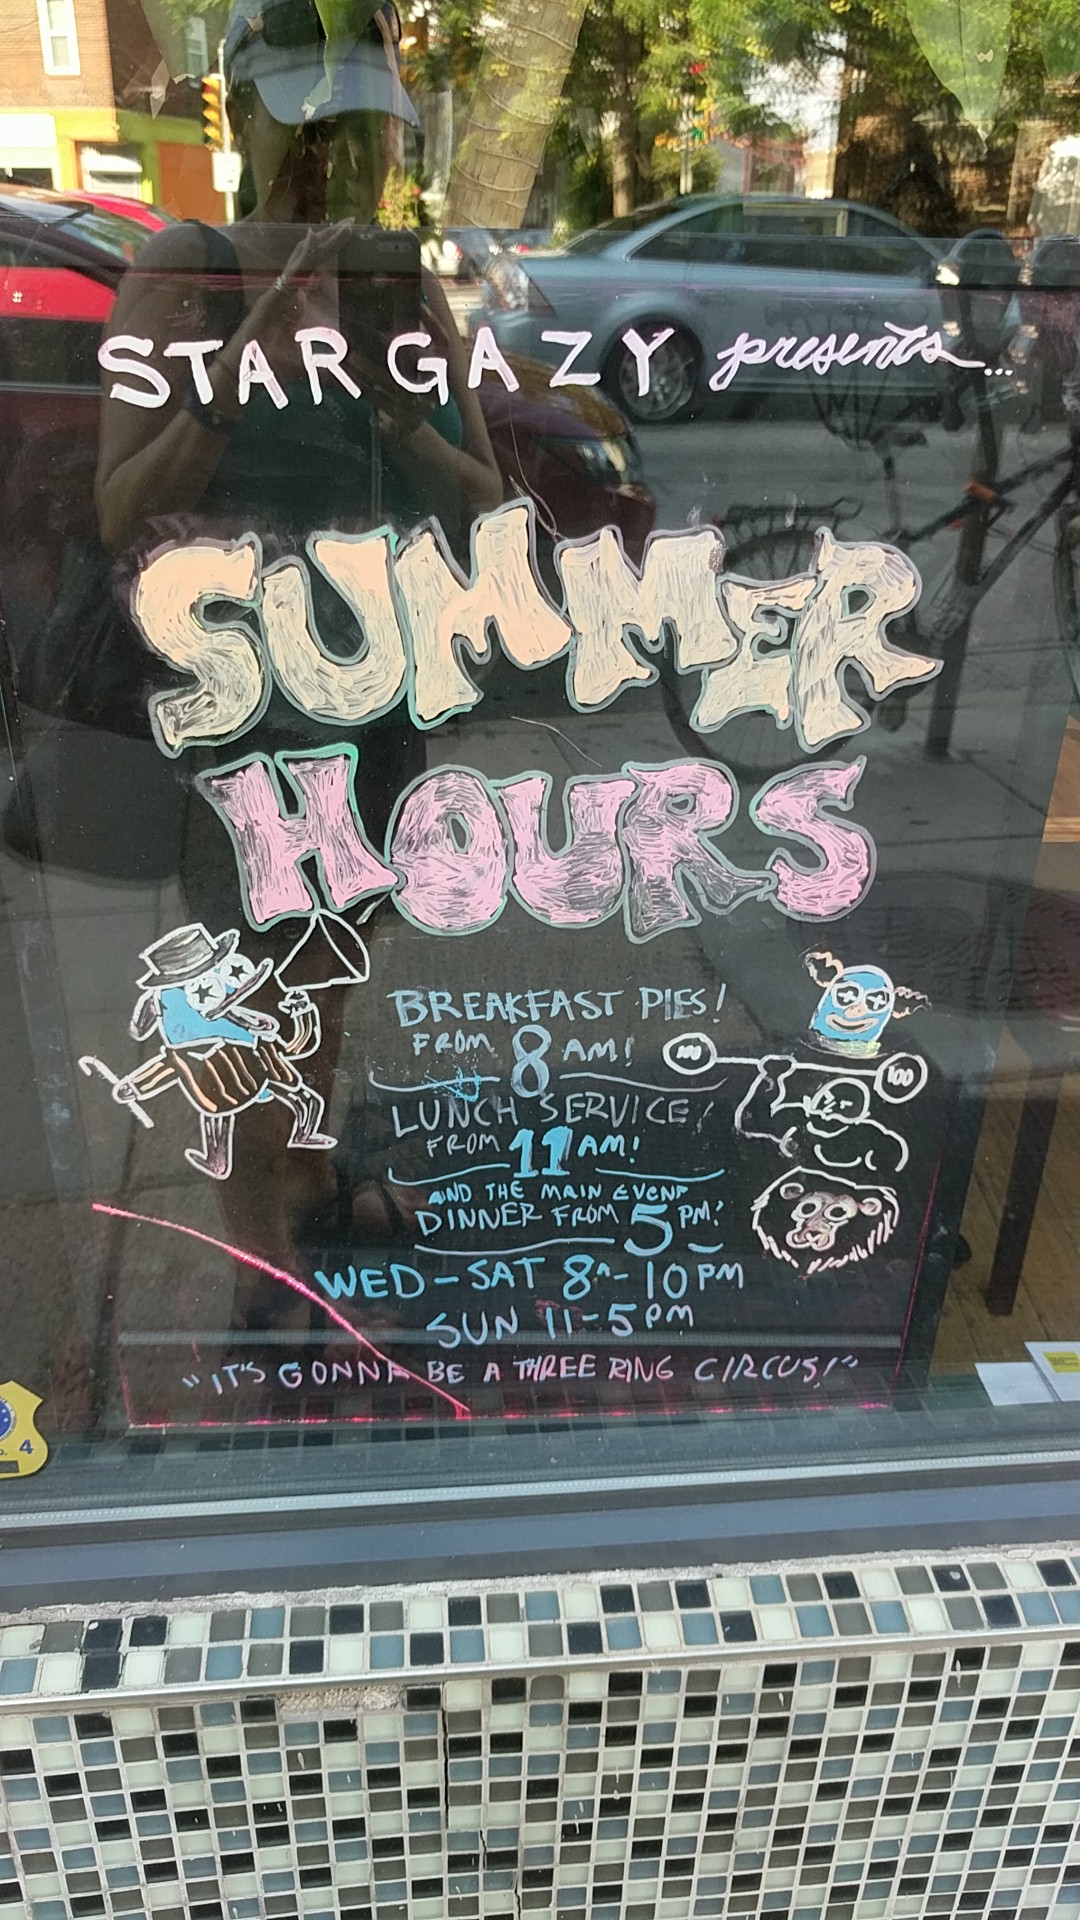 STARGAZY presents...
SUMMER
HOURS
BREAKFAST PIES!
FROM 8 AM!
LUNCH SERVICE!
FROM 11 AM!
AND THE MAIN EVENT
DINNER FROM 5 PM!
100 100
WED-SAT 8A-10PM
SUN 11-5PM
"IT'S GONNA BE A THREE RING CIRCUS!"
4